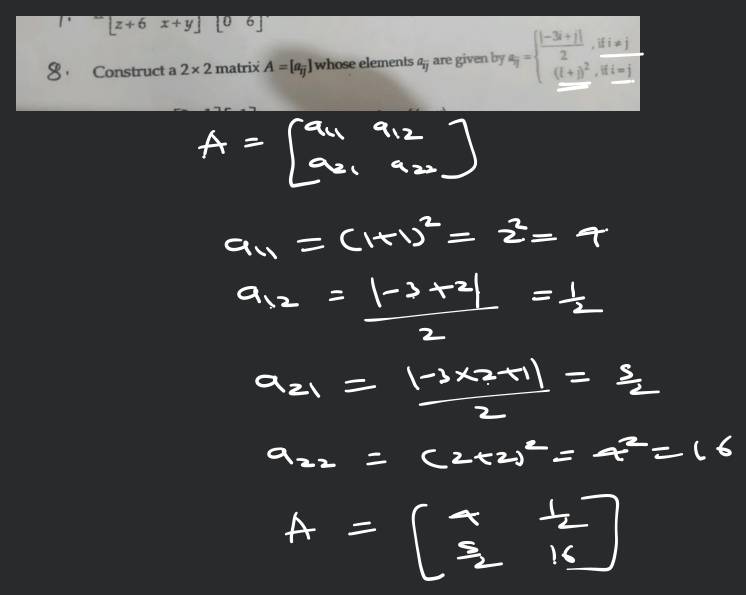 [z+6 x+y] [0 6]
8. Construct a 2×2 matrix A = [aij] whose elements aij are given by aij = { |-3i+j|/2 , if i≠j
(i+j)², if i=j
A = [a11 a12
a21 a22]
a11 = (1+1)² = 2² = 4
a12 = |-3+2|/2 = 1/2
a21 = |-3×2+1|/2 = 5/2
a22 = (2+2)² = 4² = 16
A = [4 1/2
5/2 16]